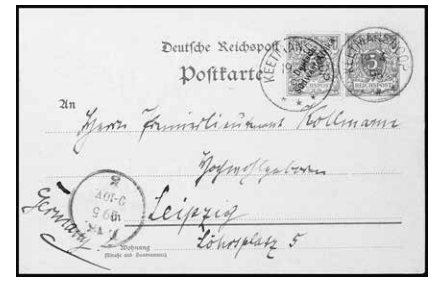 Deutsche Reichspost
Postkarte
KEETMANSHOOP
KEETMANSHOOP
REICHSPOST
An
Herrn Premierlieutenant Kollmann
Hochwohlgeboren
Leipzig
Löhrsplatz 5
Germany
Wohnung
(Straße und Hausnummer)